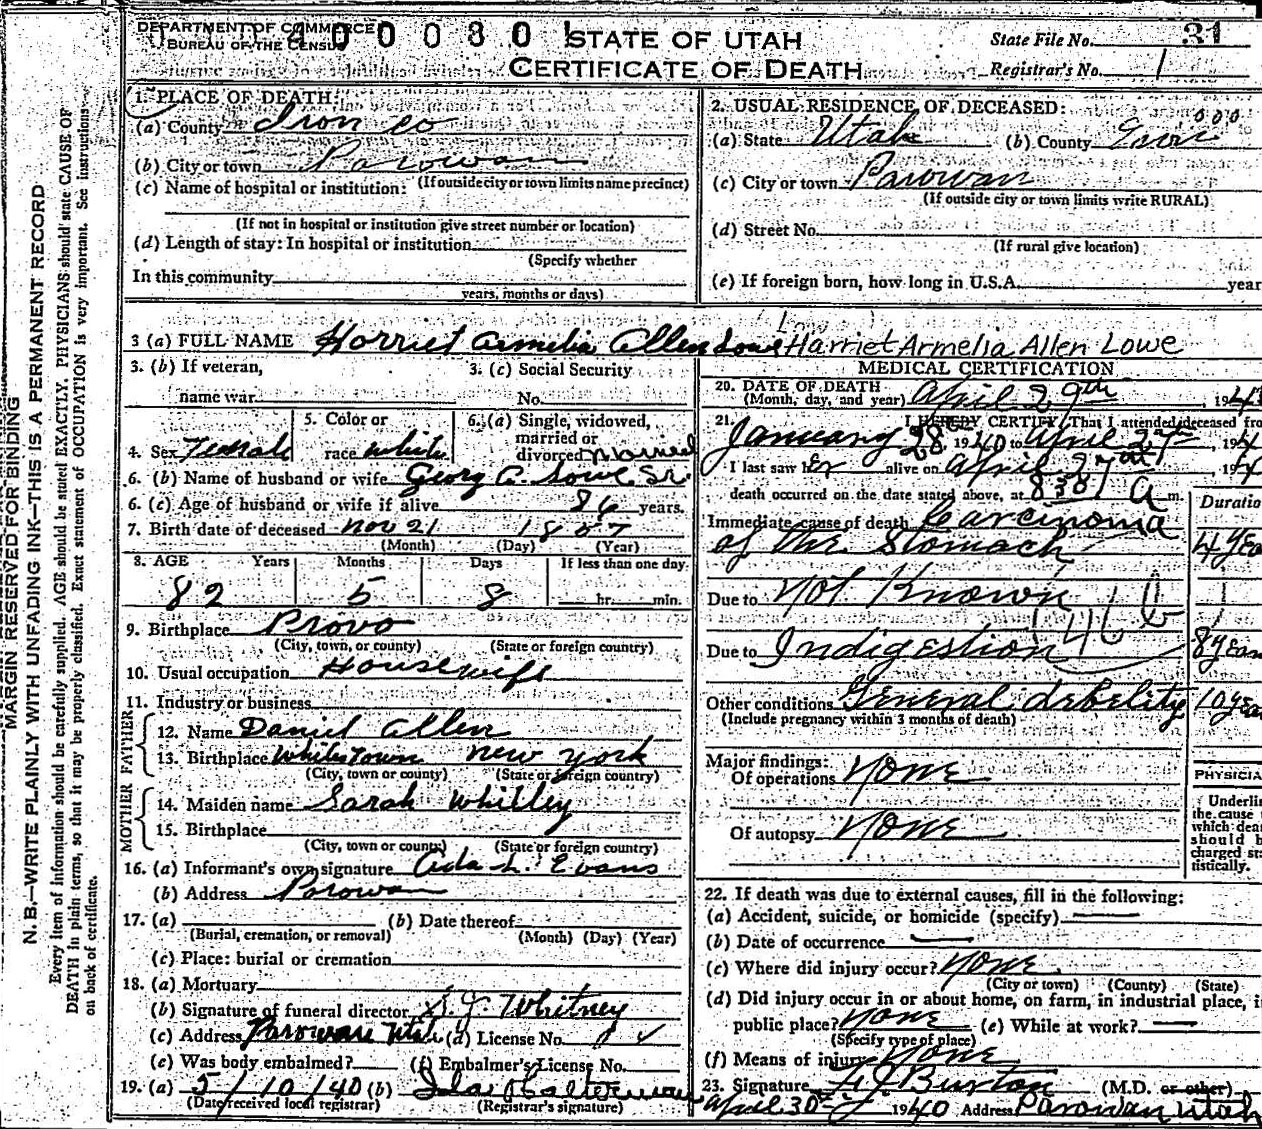 DEPARTMENT OF COMMERCE
BUREAU OF THE CENSUS
400030
STATE OF UTAH
CERTIFICATE OF DEATH
State File No. 31
Registrar's No. 1
MARGIN RESERVED FOR BINDING
N. B.—WRITE PLAINLY WITH UNFADING INK—THIS IS A PERMANENT RECORD
Every item of information should be carefully supplied. AGE should be stated EXACTLY. PHYSICIANS should state CAUSE OF
DEATH in plain terms, so that it may be properly classified. Exact statement of OCCUPATION is very important. See instructions
on back of certificate.
1. PLACE OF DEATH:
(a) County Iron co
(b) City or town Parowan
(c) Name of hospital or institution: (If outside city or town limits name precinct)
(If not in hospital or institution give street number or location)
(d) Length of stay: In hospital or institution
(Specify whether
In this community
years, months or days)
2. USUAL RESIDENCE OF DECEASED:
000
(a) State Utah (b) County
(c) City or town Parowan
(If outside city or town limits write RURAL)
(d) Street No.
(If rural give location)
(e) If foreign born, how long in U.S.A. year
3 (a) FULL NAME Harriet Armelia Allen Lowe Harriet Armelia Allen Lowe
3. (b) If veteran, 3. (c) Social Security
name war No.
4. Sex Female 5. Color or race white 6. (a) Single, widowed, married or divorced married
6. (b) Name of husband or wife Georg A. Lowe Sr.
6. (c) Age of husband or wife if alive 86 years.
7. Birth date of deceased Nov 21 1857
(Month) (Day) (Year)
8. AGE Years Months Days If less than one day
82 5 8 hr. min.
9. Birthplace Provo
(City, town, or county) (State or foreign country)
10. Usual occupation Housewife
11. Industry or business
FATHER
12. Name Daniel Allen
13. Birthplace Whitestown New York
(City, town or county) (State or foreign country)
MOTHER
14. Maiden name Sarah Whitley
15. Birthplace
(City, town or county) (State or foreign country)
16. (a) Informant's own signature Ada L. Evans
(b) Address Parowan
17. (a) (b) Date thereof
(Burial, cremation, or removal) (Month) (Day) (Year)
(c) Place: burial or cremation
18. (a) Mortuary
(b) Signature of funeral director Whitney
(c) Address Parowan Utah (d) License No.
(e) Was body embalmed? (f) Embalmer's License No.
19. (a) 5/10/40 (b) Ida
(Date received local registrar) (Registrar's signature)
MEDICAL CERTIFICATION
20. DATE OF DEATH
(Month, day, and year) April 29th, 194
21. I HEREBY CERTIFY, That I attended deceased fro
January 28 1940 to April 27th, 194
I last saw her alive on April 27th, 194
death occurred on the date stated above, at A m.
Duratio
Immediate cause of death Carcinoma
of the Stomach 4 yea
Due to Not Known
46 b
Due to Indigestion 8 year
Other conditions General debelity 10 yea
(Include pregnancy within 3 months of death)
Major findings:
Of operations None
Of autopsy None
PHYSICIA
Underlin
the cause
which dea
should b
charged sta
tistically.
22. If death was due to external causes, fill in the following:
(a) Accident, suicide, or homicide (specify)
(b) Date of occurrence
(c) Where did injury occur? None
(City or town) (County) (State)
(d) Did injury occur in or about home, on farm, in industrial place, i
public place? None (e) While at work?
(Specify type of place)
(f) Means of injury None
23. Signature Burton (M.D. or other)
April 30th 1940 Address Parowan Utah